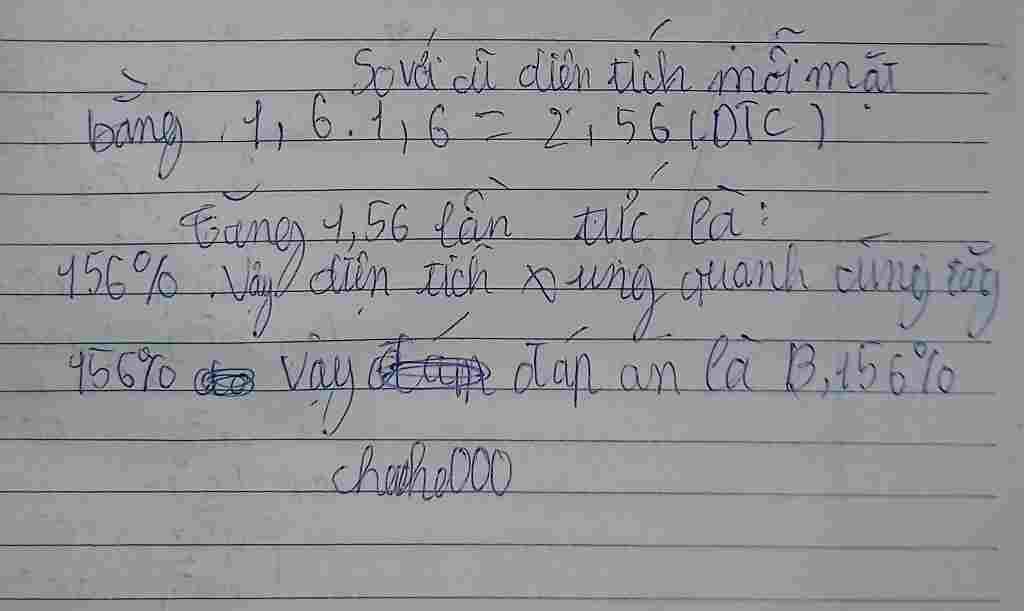 So với cũ diện tích mỗi mặt
bằng 1,6.1,6 = 2,56 (DTC)
Tăng 1,56 lần tức là:
156%. Vậy diện tích xung quanh cũng tăng
156% Vậy đáp án là B,156%